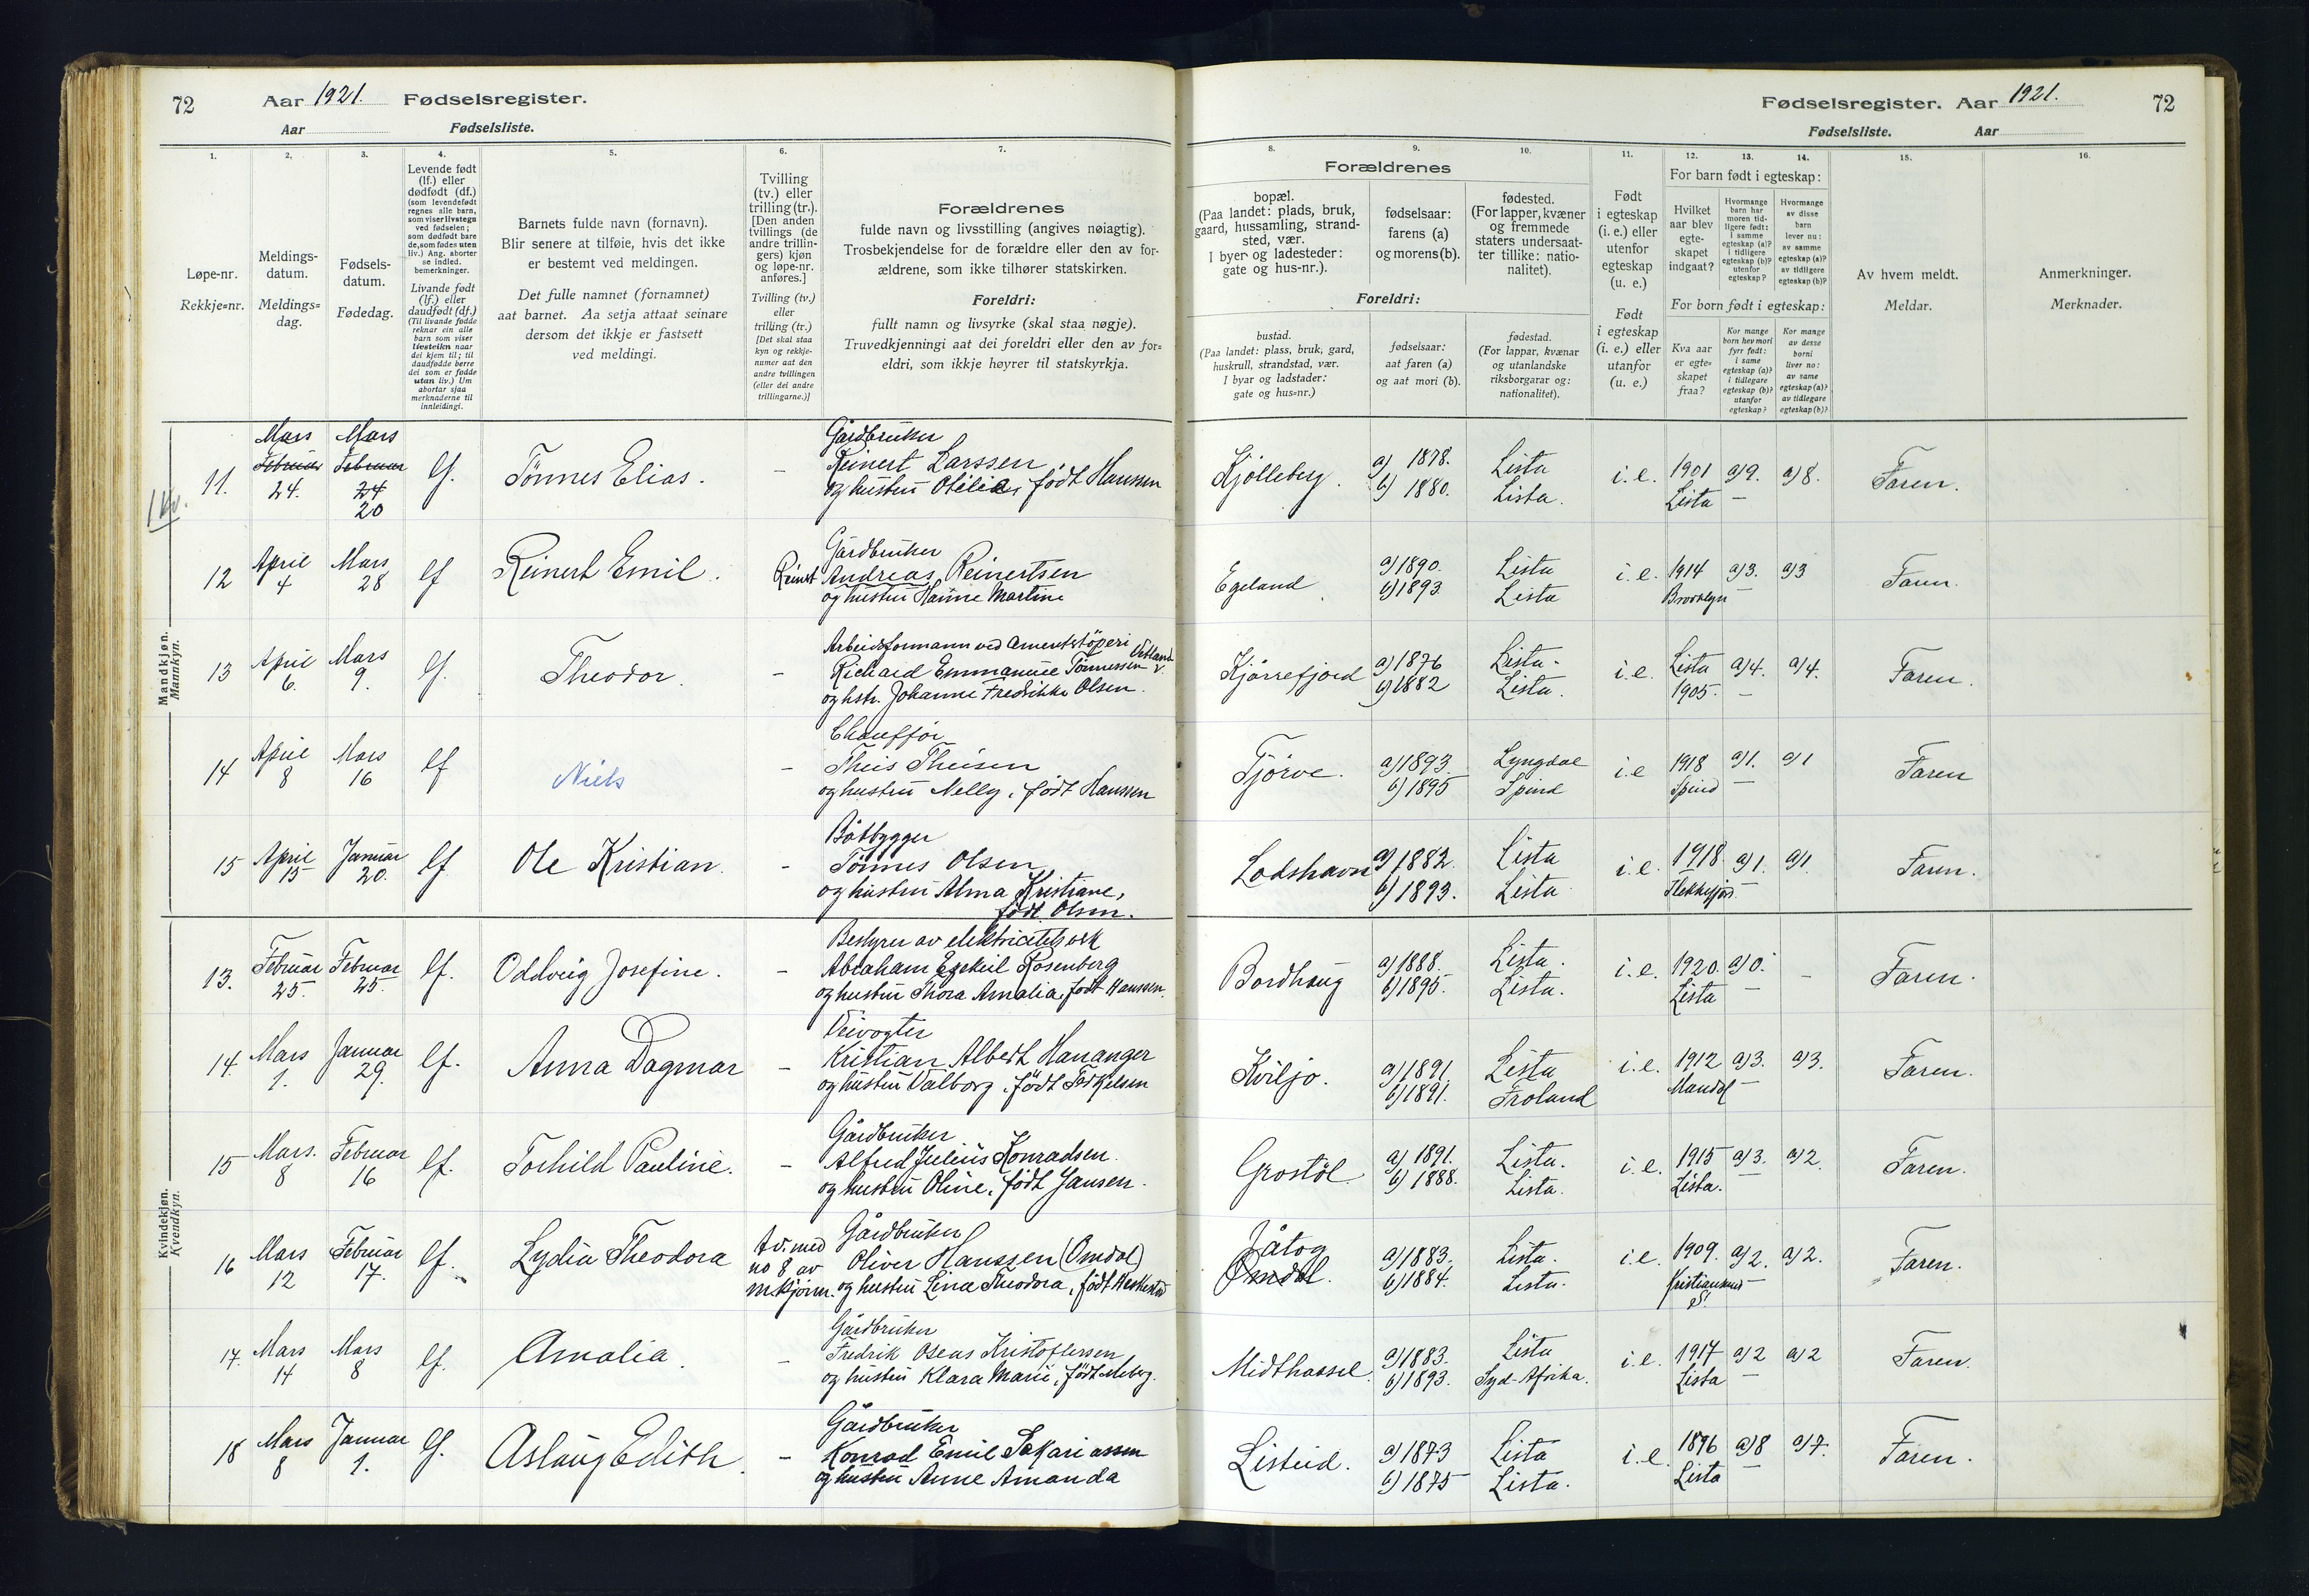 72 Aar 1921. Fødselsregister.
Aar Fødselsliste.
1.
Løpe-nr.
Rekkje=nr.
2.
Meldings-
datum.
Meldings=
dag.
3.
Fødsels-
datum.
Fødedag.
4.
Levende født
(lf.) eller
dødfødt (df.)
(som levendefødt
regnes alle barn,
som viser livstegn
ved fødselen;
som dødfødt bare
de, som fødes uten
liv.) Ang. aborter
se indled.
bemerkninger.
Livande født
(lf.) eller
daudfødt (df.)
(Til livande fødde
reknar ein alle
barn som viser
livsteikn naar
dei kjem til; til
daudfødde berre
dei som er fødde
utan liv.) Um
abortar sjaa
merknaderne til
innleidingi.
5.
Barnets fulde navn (fornavn).
Blir senere at tilføie, hvis det ikke
er bestemt ved meldingen.
Det fulle namnet (fornamnet)
aat barnet. Aa setja attaat seinare
dersom det ikkje er fastsett
ved meldingi.
6.
Tvilling
(tv.) eller
trilling (tr.).
[Den anden
tvillings (de
andre trillin-
gers) kjøn
og løpe-nr.
anføres.]
Tvilling (tv.)
eller
trilling (tr.)
[Det skal staa
kyn og rekkje-
numer aat den
andre tvillingen
(eller dei andre
trillingarne.)]
7.
Forældrenes
fulde navn og livsstilling (angives nøiagtig).
Trosbekjendelse for de forældre eller den av for-
ældrene, som ikke tilhører statskirken.
Foreldri:
fullt namn og livsyrke (skal staa nøgje).
Truvedkjenningi aat dei foreldri eller den av for=
eldri, som ikkje høyrer til statskyrkja.
Fødselsregister. Aar 1921. 72
Fødselsliste. Aar
8.
Forældrenes
bopæl.
(Paa landet: plads, bruk,
gaard, hussamling, strand-
sted, vær.
I byer og ladesteder:
gate og hus-nr.).
Foreldri:
bustad.
(Paa landet: plass, bruk, gard,
huskrull, strandstad, vær.
I byar og ladstader:
gate og hus=nr.)
9.
fødselsaar:
farens (a)
og morens (b).
fødselsaar:
aat faren (a)
og aat mori (b).
10.
fødested.
(For lapper, kvæner
og fremmede
staters undersaat-
ter tillike: natio-
nalitet).
fødestad.
(For lappar, kvænar
og utanlandske
riksborgarar og:
nationalitet).
11.
Født
i egteskap
(i. e.) eller
utenfor
egteskap
(u. e.)
Født
i egteskap
(i. e.) eller
utanfor
(u. e.)
12. 13. 14.
For barn født i egteskap:
Hvilket
aar blev
egte-
skapet
indgaat?
Hvormange
barn har
moren tid-
ligere født:
i samme
egteskap (a)?
i tidligere
egteskap (b)?
utenfor
egteskap?
Hvormange
av disse
barn
lever nu:
av samme
egteskap (a)?
av tidligere
egteskap (b)?
For born født i egteskap:
Kva aar
er egte=
skapet
fraa?
Kor mange
born hev mori
fyrr født:
i same
egteskap (a)?
i tidlegare
egteskap (b)?
utanfor
egteskap?
Kor mange
av desse
borni
liver no:
av same
egteskap (a)?
av tidlegare
egteskap (b)?
15.
Av hvem meldt.
Meldar.
16.
Anmerkninger.
Merknader.
Mandkjøn.
Mannkyn.
1 Kv.
11. Mars Februar 24. Mars Februar 24 20 lf. Tønnes Elias. –
Gårdbruker
Reinert Larssen
og hustru Otilie, født Hanssen
Kjølleberg. a) 1878. b) 1880. Lista Lista. i. e. 1901 Lista a) 9. – a) 8. Faren.
12 April 4 Mars 28 lf Reinert Emil.
Gårdbruker
Reinert Andreas Reinertsen
og hustru Hanne Martine
Egeland. a) 1890. b) 1893. Lista Lista i. e. 1914 Brooklyn a) 3. – a) 3 Faren.
13 April 6. Mars 9. lf. Theodor. –
Arbeidsformann ved Cementstöperi Vestland
Richard Emmanuel Tönnessen
og hstr. Johanne Fredrikke Olsen.
Kjørrefjord a) 1876 b) 1882 Lista. Lista. i. e. Lista 1905. a) 4. – a) 4. Faren.
14 April 8 Mars 16 lf Niels –
Chauffør
Theis Theisen
og hustru Nelly, født Hanssen
Tjörve. a) 1893 b) 1895 Lyngdal Spind i. e 1918 Spind a) 1. – a) 1 Faren
15 April 15 Januar 20. lf Ole Kristian. –
Båtbygger
Tönnes Olsen
og hustru Alma Kristiane,
født Olsen.
Lodshavn a) 1882. b) 1893. Lista Lista i. e. 1918. Flekkefjord a) 1. – a) 1. Faren.
Kvindekjøn.
Kvendkyn.
13. Februar 25. Februar 25. lf. Oddveig Josefine. –
Bestyrer av elektricitetsverk
Abraham Esekiel Rosenberg
og hustru Thora Amalia, født Hanssen.
Bordhaug a) 1888. b) 1895. Lista. Lista. i. e. 1920. Lista a) 0. – – Faren.
14. Mars 1. Januar 29. lf. Anna Dagmar –
Veivogter
Kristian Albert Hananger
og hustru Valborg, født Torkjelsen
Kviljo. a) 1891 b) 1891. Lista Froland i. e. 1912 Mandal a) 3. – a) 3. Faren.
15 Mars. 8 Februar 16 lf. Torhild Pauline. –
Gårdbruker
Alfred Julius Konradsen.
og hustru Oline, født Jansen.
Grostøl a) 1891. b) 1888. Lista. Lista. i. e. 1915 Lista. a) 3. – a) 2. Faren.
16 Mars 12 Februar 17. lf. Lydia Theodora
tv. med
no 8 av
m.kjönn.
Gårdbruker
Oliver Hanssen (Omdal)
og hustru Lina Theodora, født Heskestad
Jåtog
Omdal. a) 1883. b) 1884. Lista. Lista. i. e. 1909. Kristiansund S. a) 2. – a) 2. Faren.
17. Mars 14 Mars 8 lf. Amalia. –
Gårdbruker
Fredrik Oseas Kristoffersen
og hustru Klara Marie, født Meberg.
Midthassel. a) 1883. b) 1893. Lista Syd-Afrika. i. e. 1917 Lista a) 2 – a) 2 Faren.
18 Mars 8 Januar 1. lf. Aslaug Edith. –
Gårdbruker
Konrad Emil Sakariassen
og hustru Anne Amanda
Listeid. a) 1873 b) 1875 Lista Lista. i. e. 1896 Lista a) 8 – a) 7. Faren.